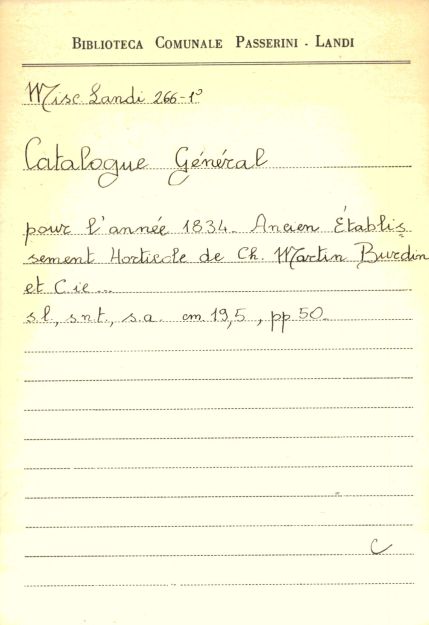 BIBLIOTECA COMUNALE PASSERINI - LANDI
Misc Landi 266-1º
Catalogue Général
pour l'année 1834. Ancien Établis
sement Horticole de Ch. Martin Burdin
et Cie...
s.l., s.n.t., s.a. cm. 19,5, pp. 50.
C